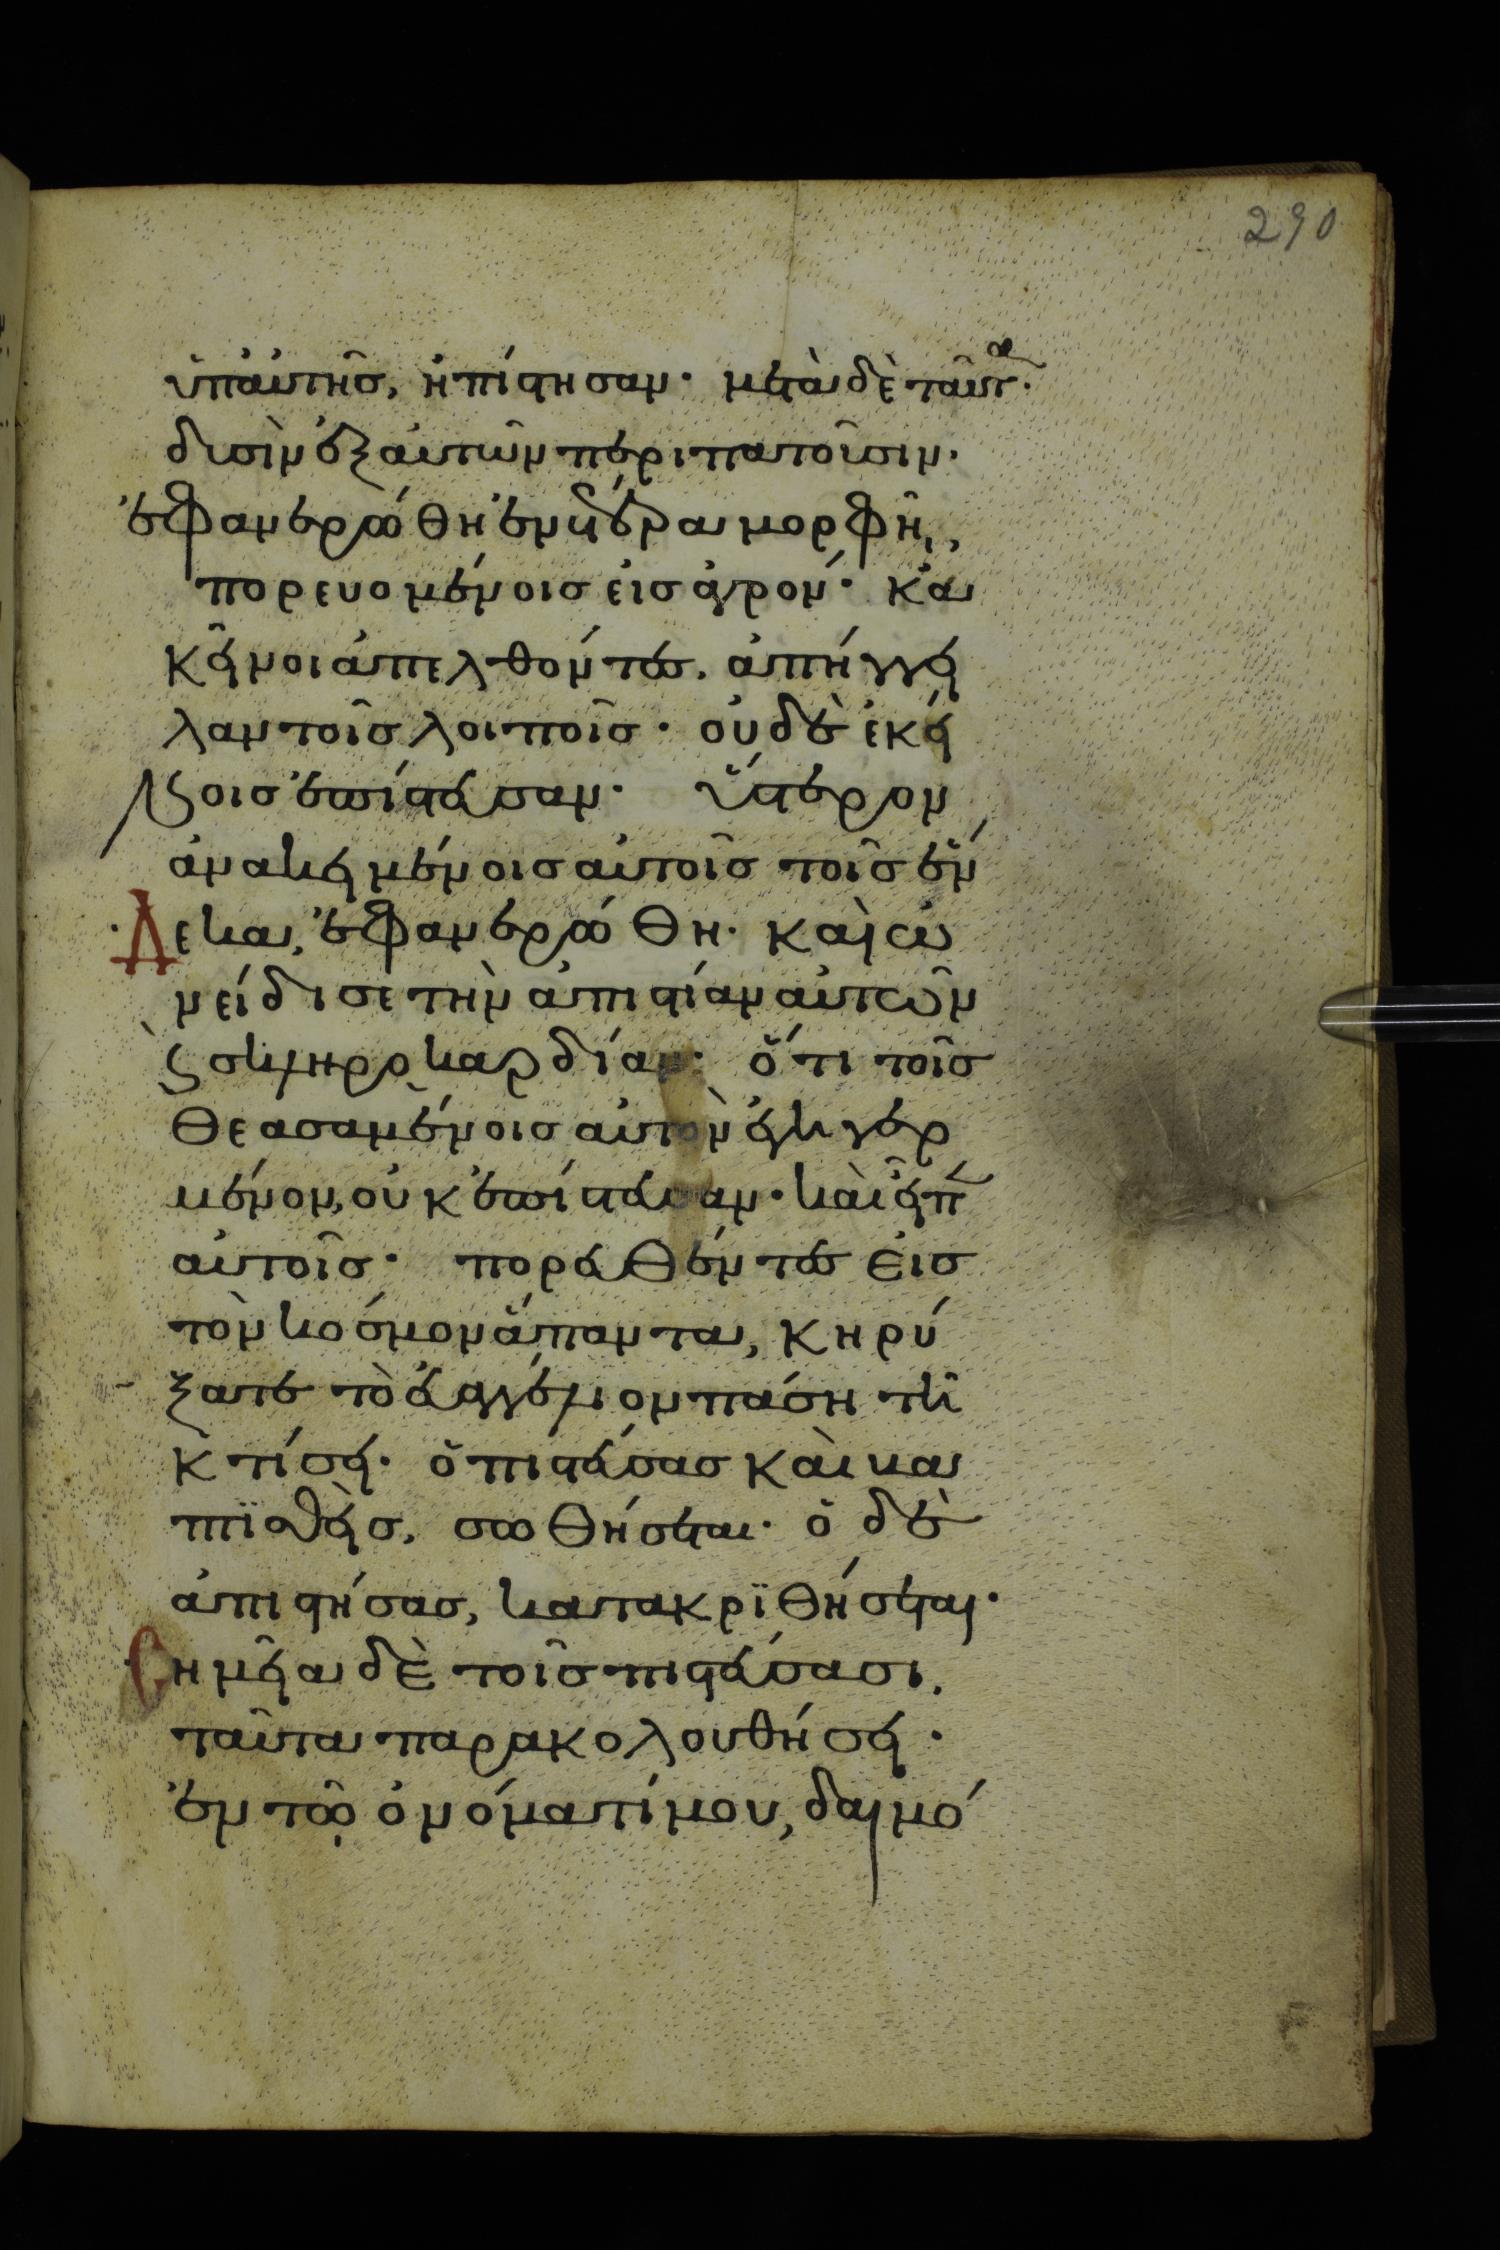 290
ὑπ' αὐτῆς, ἠπίστησαν· μετὰ δὲ ταῦτα·
δυσὶν ἐξ αὐτῶν περιπατοῦσιν·
ἐφανερώθη ἐν ἑτέρα μορφῆ,
πορευομένοις εἰς ἀγρόν· κα
κεῖνοι ἀπελθόντες. ἀπήγγει
λαν τοῖς λοιποῖς· οὐδὲ ἐκεί
νοις ἐπίστευσαν· ὕστερον
ἀνακειμένοις αὐτοῖς τοῖς ἕν
δεκα, ἐφανερώθη. καὶ ὠ
νείδισε τὴν ἀπιστίαν αὐτῶν
ϛ σκληροκαρδίαν· ὅτι τοῖς
θεασαμένοις αὐτὸν ἐγηγερ
μένον, οὐκ ἐπίστευσαν· καὶ εἶπεν
αὐτοῖς· πορευθέντες εἰς
τὸν κόσμον ἅπαντα, κηρύ
ξατε τὸ εὐαγγέλιον πάση τῆ
κτίσει· ὁ πιστεύσας καὶ βα
πτϊσθεὶς, σωθήσεται· ὁ δὲ
ἀπιστήσας, κατακρϊθήσεται·
Σημεῖα δὲ τοῖς πιστεύσασι.
ταῦτα παρακολουθήσει·
ἐν τῶ ὀνόματί μου, δαιμό